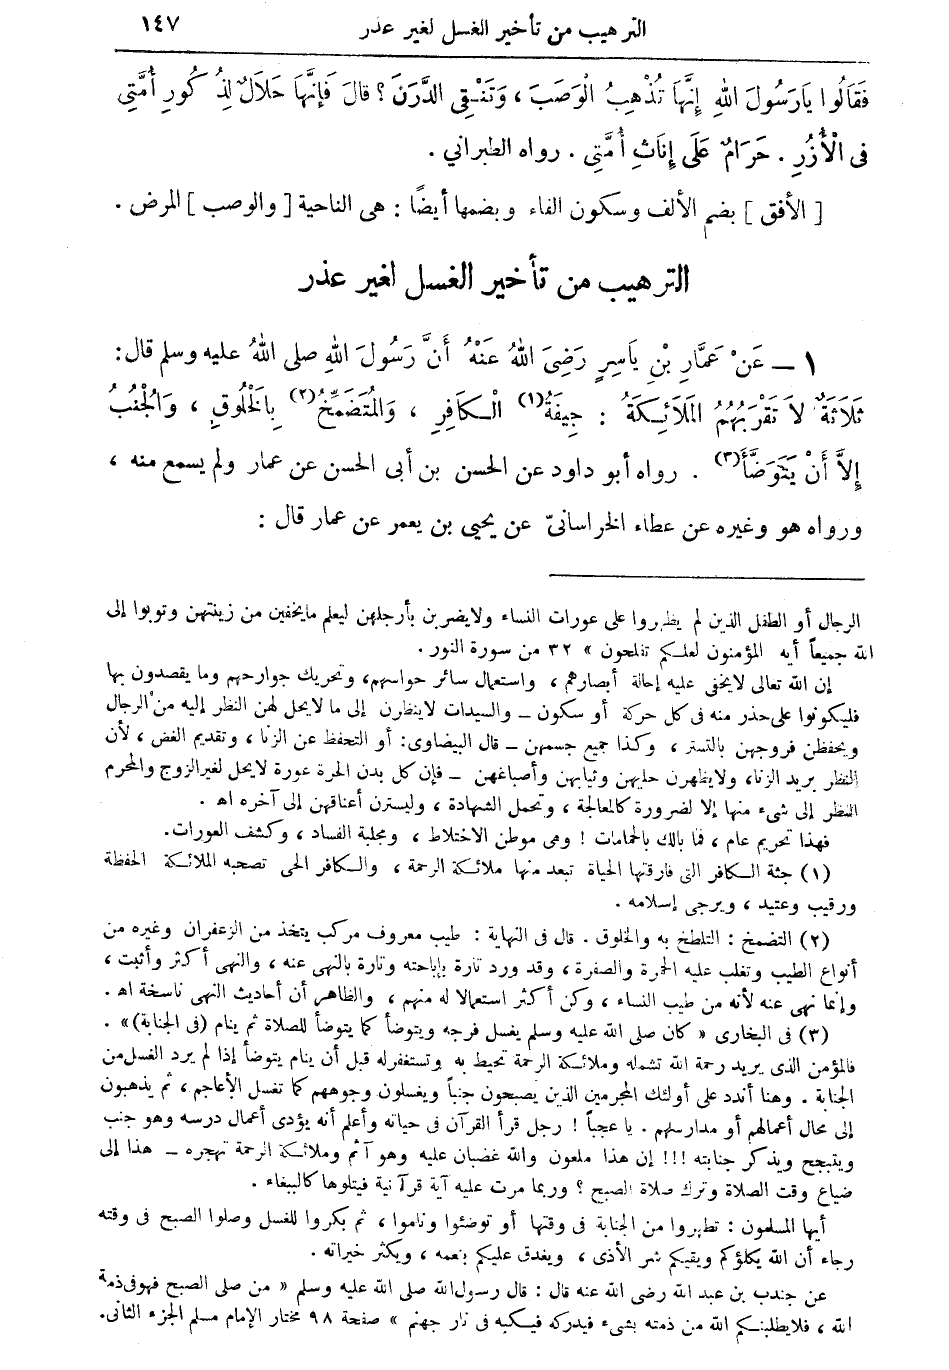 الترهيب من تأخير الغسل لغير عذر ١٤٧
فَقَالُوا يَارَسُولَ اللهِ إِنَّهَا تُذْهِبُ الْوَصَبَ ، وَتَنْقِى الدَّرَنَ ؟ قالَ فَإِنَّهَا حَلَالٌ لِذُكُورِ أُمَّتِى
فى الْأُزُرِ . حَرَامٌ عَلَى إِنَاثِ أُمَّتِى . رواه الطبراني .
[ الأفق ] بضم الألف وسكون الفاء وبضمها أيضًا : هى الناحية [ والوصب ] المرض .
الترهيب من تأخير الغسل لغير عذر
١ ــ عَنْ عَمَّارِ بْنِ يَاسِرٍ رَضِىَ اللهُ عَنْهُ أَنَّ رَسُولَ اللهِ صلى اللهُ عليه وسلم قال :
ثَلَاثَةٌ لاَ تَقْرَبُهُمُ المَلَائِكَةُ : جِيفَةُ(١) الْكافِرِ ، وَالمُتَضَمِّخُ(٢) بِالْخَلُوقِ ، وَالجُنُبُ
إِلاَّ أَنْ يَتَوَضَّأَ(٣) . رواه أبو داود عن الحسن بن أبى الحسن عن عمار ولم يسمع منه ،
ورواه هو وغيره عن عطاء الخراسانىّ عن يحيى بن يعمر عن عمار قال :
الرجال أو الطفل الذين لم يظهروا على عورات النساء ولايضربن بأرجلهن ليعلم مايخفين من زينتهن وتوبوا إلى
الله جميعاً أيه المؤمنون لعلكم تفلحون » ٣٢ من سورة النور .
إن الله تعالى لايخفى عليه إحالة أبصارهم ، واستعمال سائر حواسهم، وتحريك جوارحهم وما يقصدون بها
فليكونوا على حذر منه فى كل حركة أو سكون ــ والسيدات لاينظرن إلى ما لايحل لهن النظر إليه من الرجال
ويحفظن فروجهن بالتستر ، وكذا جميع جسمهن ــ قال البيضاوى: أو التحفظ عن الزنا ، وتقديم الغض ، لأن
النظر بريد الزنا، ولايظهرن حليهن وثيابهن وأصباغهن ــ فإن كل بدن الحرة عورة لايحل لغيرالزوج والمحرم
النظر إلى شىء منها إلا لضرورة كالمعالجة ، وتحمل الشهادة ، وليسترن أعناقهن إلى آخره اهـ .
فهذا تحريم عام ، فما بالك بالحمامات ! وهى موطن الاختلاط ، ومجلبة الفساد ، وكشف العورات.
(١) جثة الكافر التى فارقتها الحياة تبعد منها ملائكة الرحمة ، والكافر الحى تصحبه الملائكة الحفظة
ورقيب وعتيد ، ويرجى إسلامه .
(٢) التضمخ : التلطخ به والخلوق . قال فى النهاية : طيب معروف مركب يتخذ من الزعفران وغيره من
أنواع الطيب وتغلب عليه الحمرة والصفرة ، وقد ورد تارة بإباحته وتارة بالنهى عنه ، والنهى أكثر وأثبت ،
وإنما نهى عنه لأنه من طيب النساء ، وكن أكثر استعمالا له منهم ، والظاهر أن أحاديث النهى ناسخة اهـ .
(٣) فى البخارى « كان صلى الله عليه وسلم يغسل فرجه ويتوضأ كما يتوضأ للصلاة ثم ينام (فى الجنابة)» .
فالمؤمن الذى يريد رحمة الله تشمله وملائكة الرحمة تحيط به وتستغفرله قبل أن ينام يتوضأ إذا لم يرد الغسل من
الجنابة . وهنا أندد على أولئك المجرمين الذين يصبحون جنباً ويغسلون وجوههم كما تغسل الأعاجم ، ثم يذهبون
إلى محال أعمالهم أو مدارسهم . يا عجباً ! رجل قرأ القرآن فى حياته وأعلم أنه يؤدى أعمال درسه وهو جنب
ويتبجح ويذكر جنابته !!! إن هذا ملعون والله غضبان عليه وهو آثم وملائكة الرحمة تهجره ــ هذا إلى
ضياع وقت الصلاة وترك صلاة الصبح ؟ وربما مرت عليه آية قرآنية فيتلوها كالببغاء .
أيها المسلمون : تطهروا من الجنابة فى وقتها أو توضئوا وناموا ، ثم بكروا للغسل وصلوا الصبح فى وقته
رجاء أن الله يكلؤكم ويقيكم شر الأذى ، ويغدق عليكم بنعمه ، ويكثر خيراته .
عن جندب بن عبد الله رضى الله عنه قال : قال رسول الله صلى الله عليه وسلم « من صلى الصبح فهوفى ذمة
الله ، فلايطلبنكم الله من ذمته بشىء فيدركه فيكبه فى نار جهنم » صفحة ٩٨ مختار الإمام مسلم الجزء الثانى.